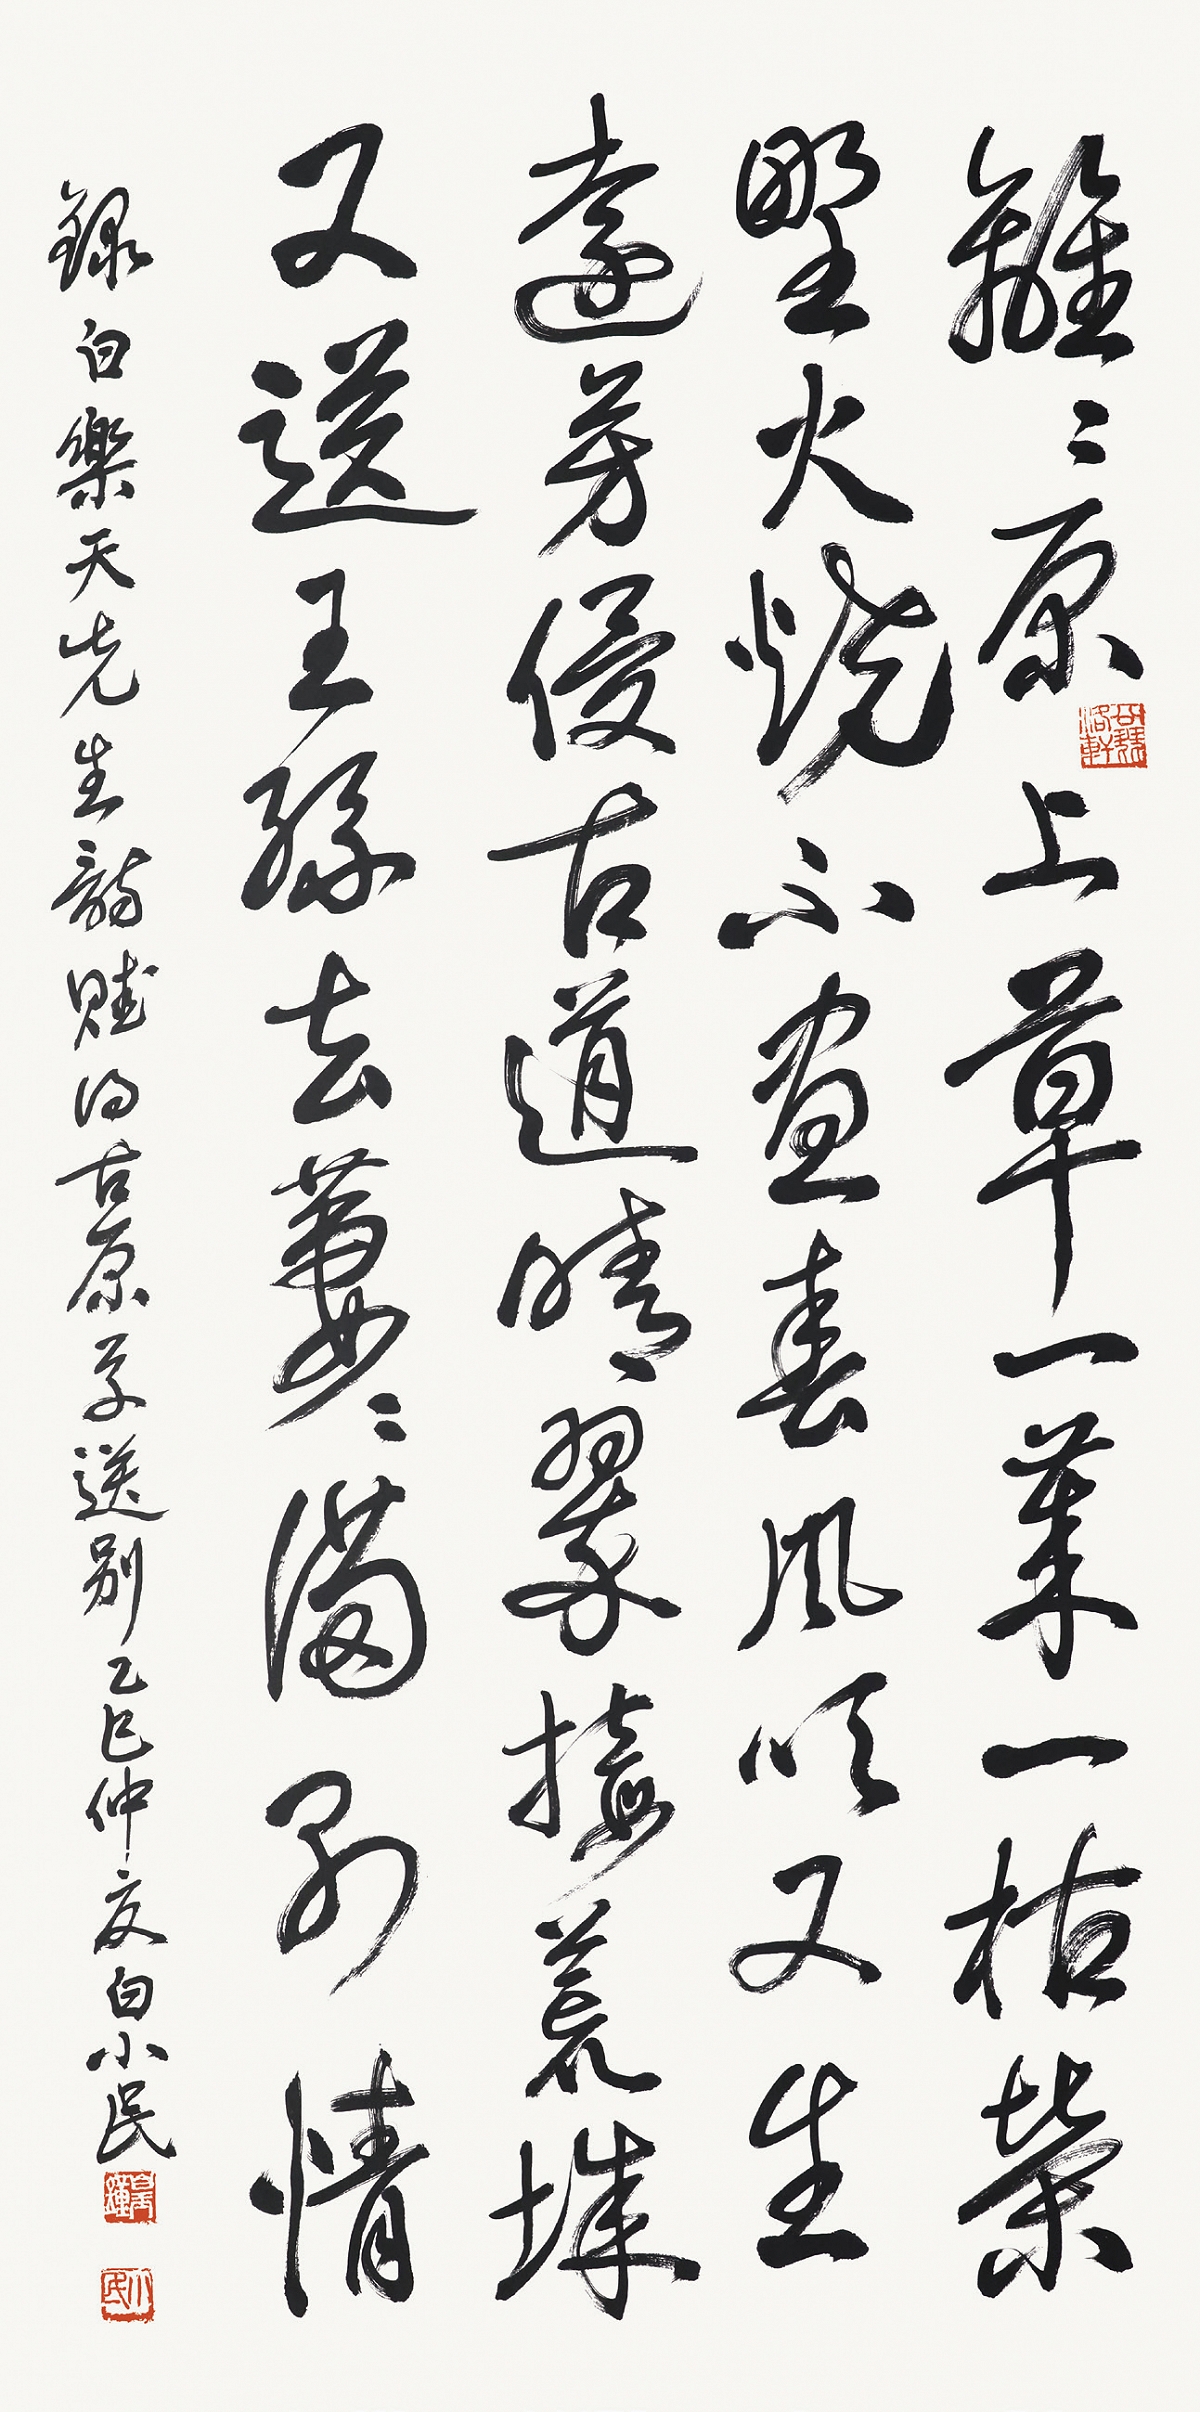 離〻原上草一歲一枯榮
野火燒不盡春風吹又生
遠芳侵古道晴翠接荒城
又送王孫去萋〻滿別情
錄白樂天先生韵賦得古原草送別乙巳仲夏白小民
小民